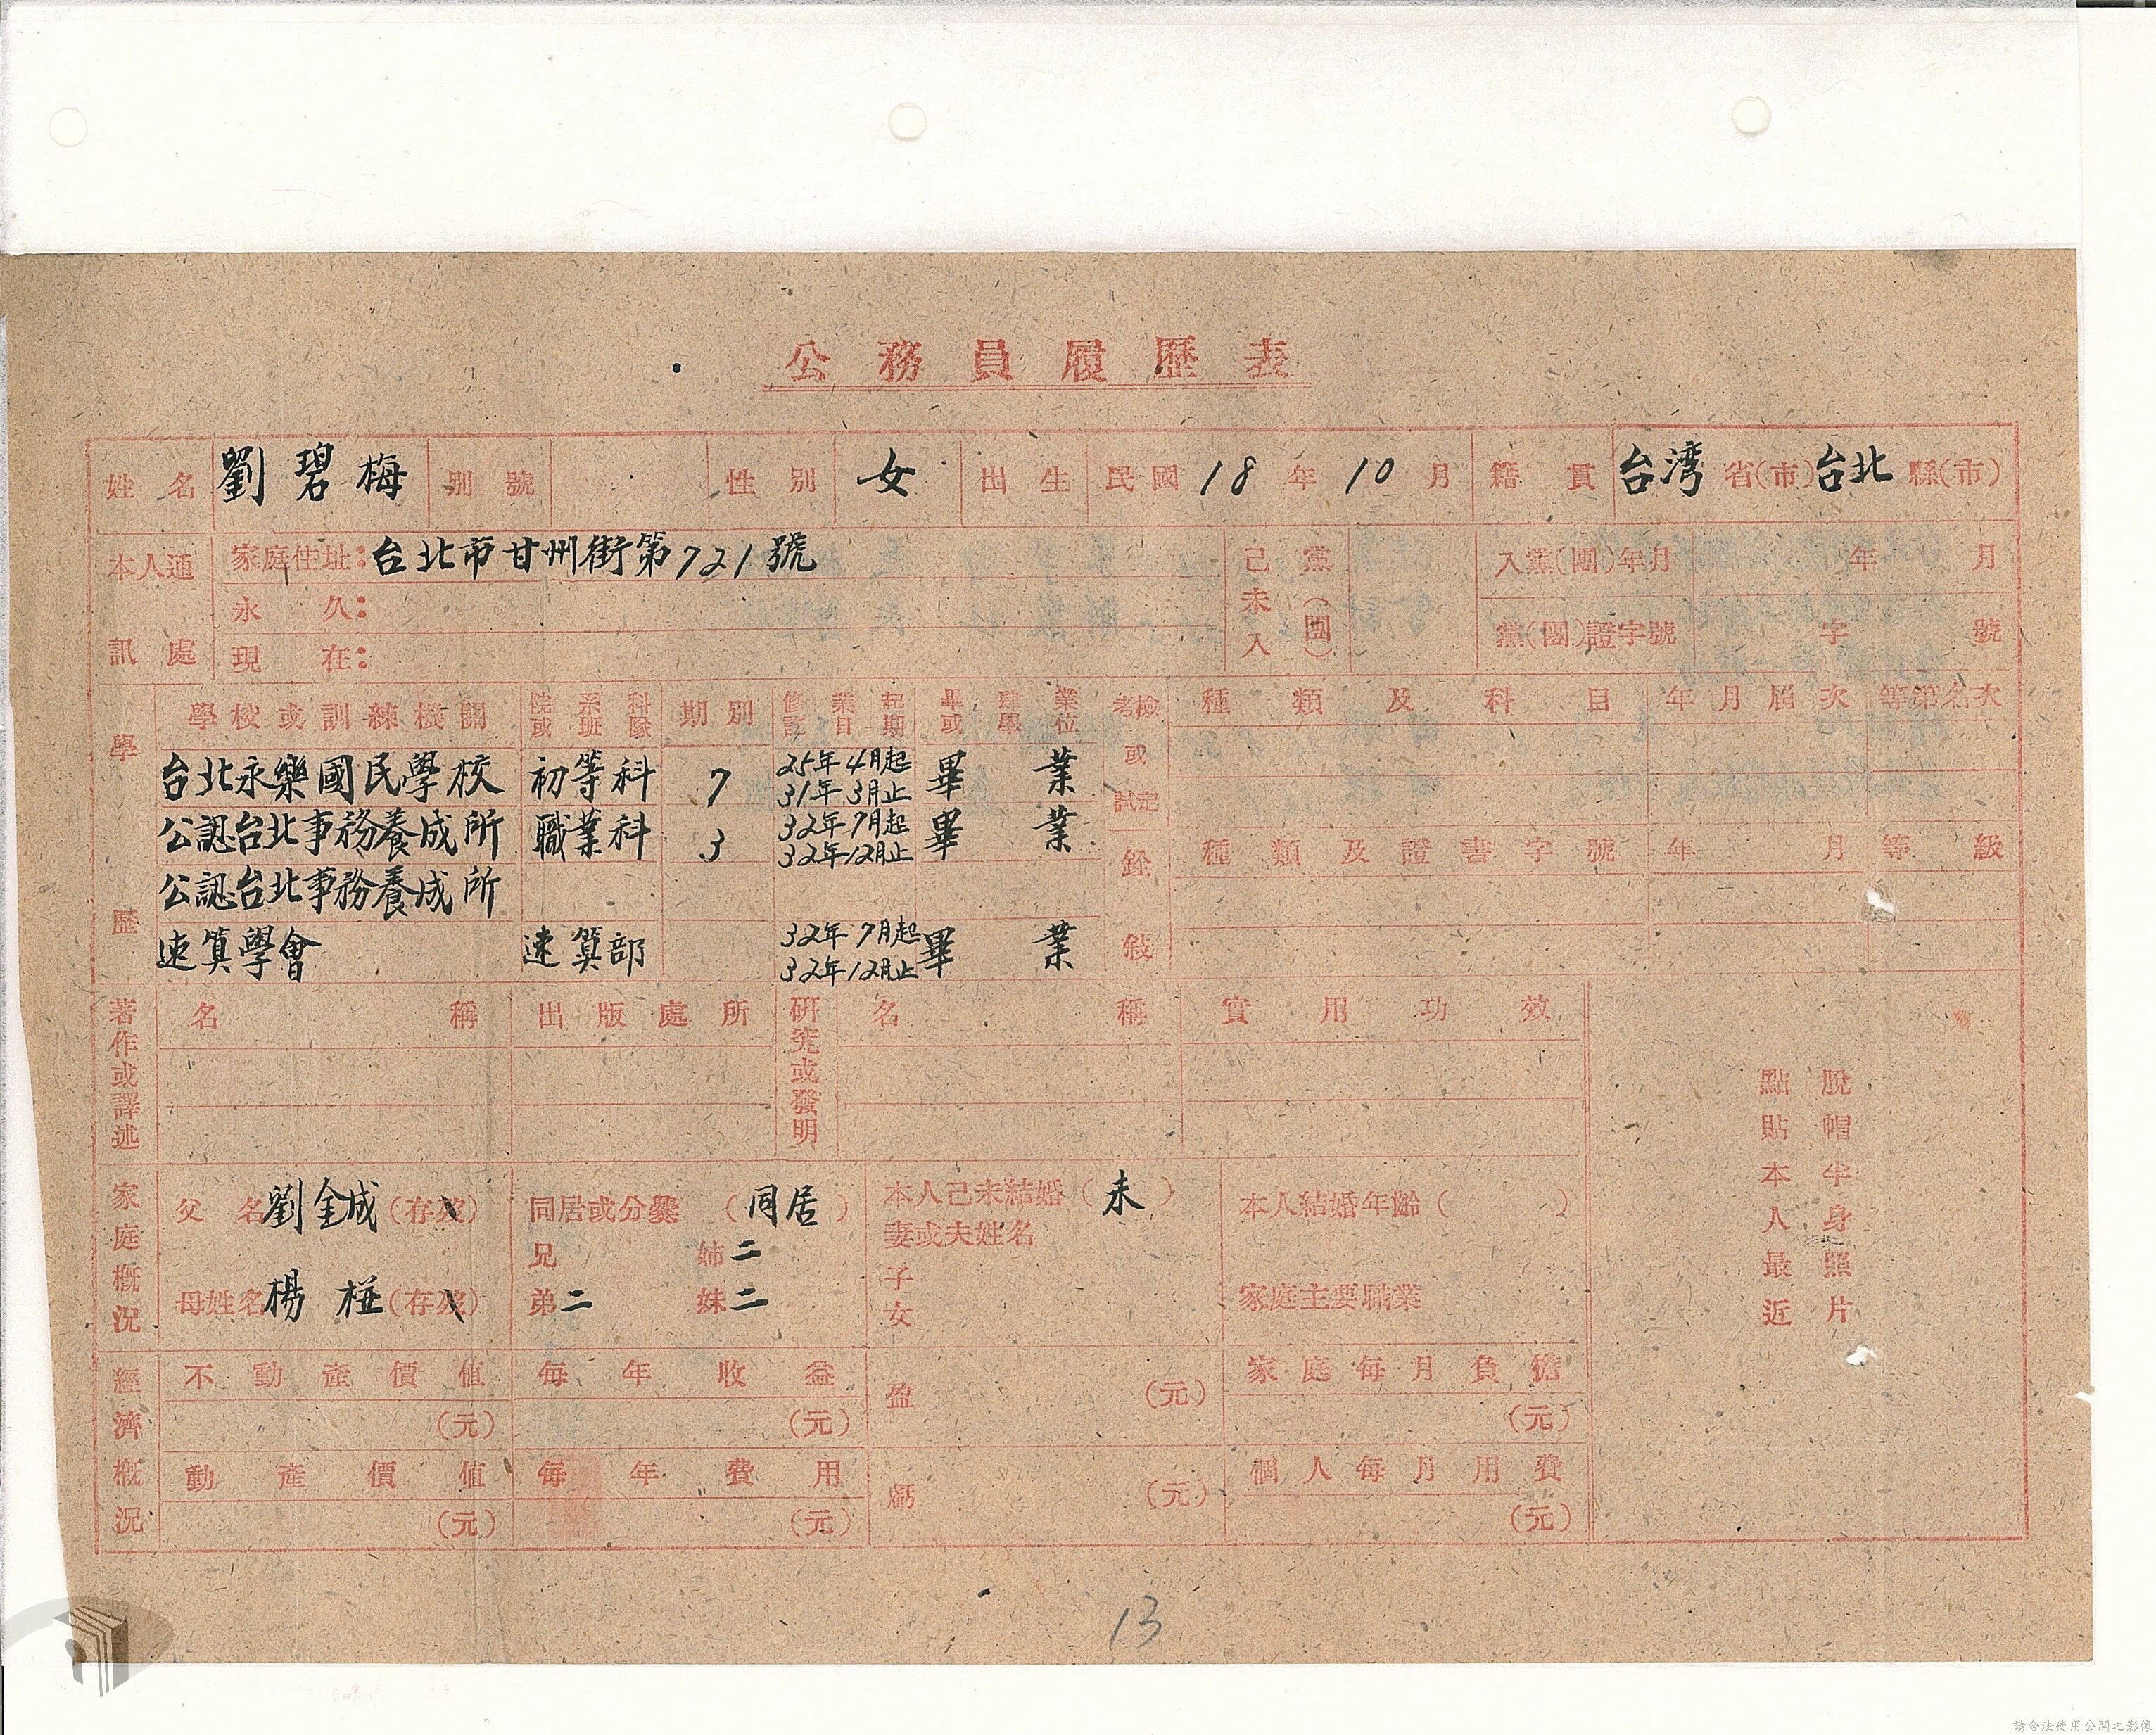 公務員履歷表
姓名 劉碧梅 別號 性別 女 出生 民國18年10月 籍貫 台湾省(市)台北縣(市)
本人通訊處 家庭住址：台北市甘州街第721號
永久：
現在：
己未入黨(團) 入黨(團)年月 年 月
黨(團)證字號 字 號
學歷 學校或訓練機關 院系科或班隊 期別 修業起訖日期 畢肄業或學位
台北永樂國民學校 初等科 7 25年4月起 31年3月止 畢業
公認台北事務養成所 職業科 3 32年7月起 32年12月止 畢業
公認台北事務養成所
速算學會 速算部 32年7月起 32年12月止 畢業
考檢或試定 種類及科目 年月屆次 等第名次
銓敍 種類及證書字號 年月 等級
著作或譯述 名稱 出版處所
研究或發明 名稱 實用功效
脫帽半身照片
點貼本人最近
家庭概況 父名 劉金成(存歿) 同居或分爨(同居) 本人己未結婚(未) 本人結婚年齡( )
兄 姉二 妻或夫姓名
母姓名 楊(存歿) 弟二 妹二 子女 家庭主要職業
經濟概況 不動產價值 每年收益 盈(元) 家庭每月負擔
(元) (元) (元)
動產價值 每年費用 虧(元) 個人每月用費
(元) (元) (元)
13
請合法使用公開之影像